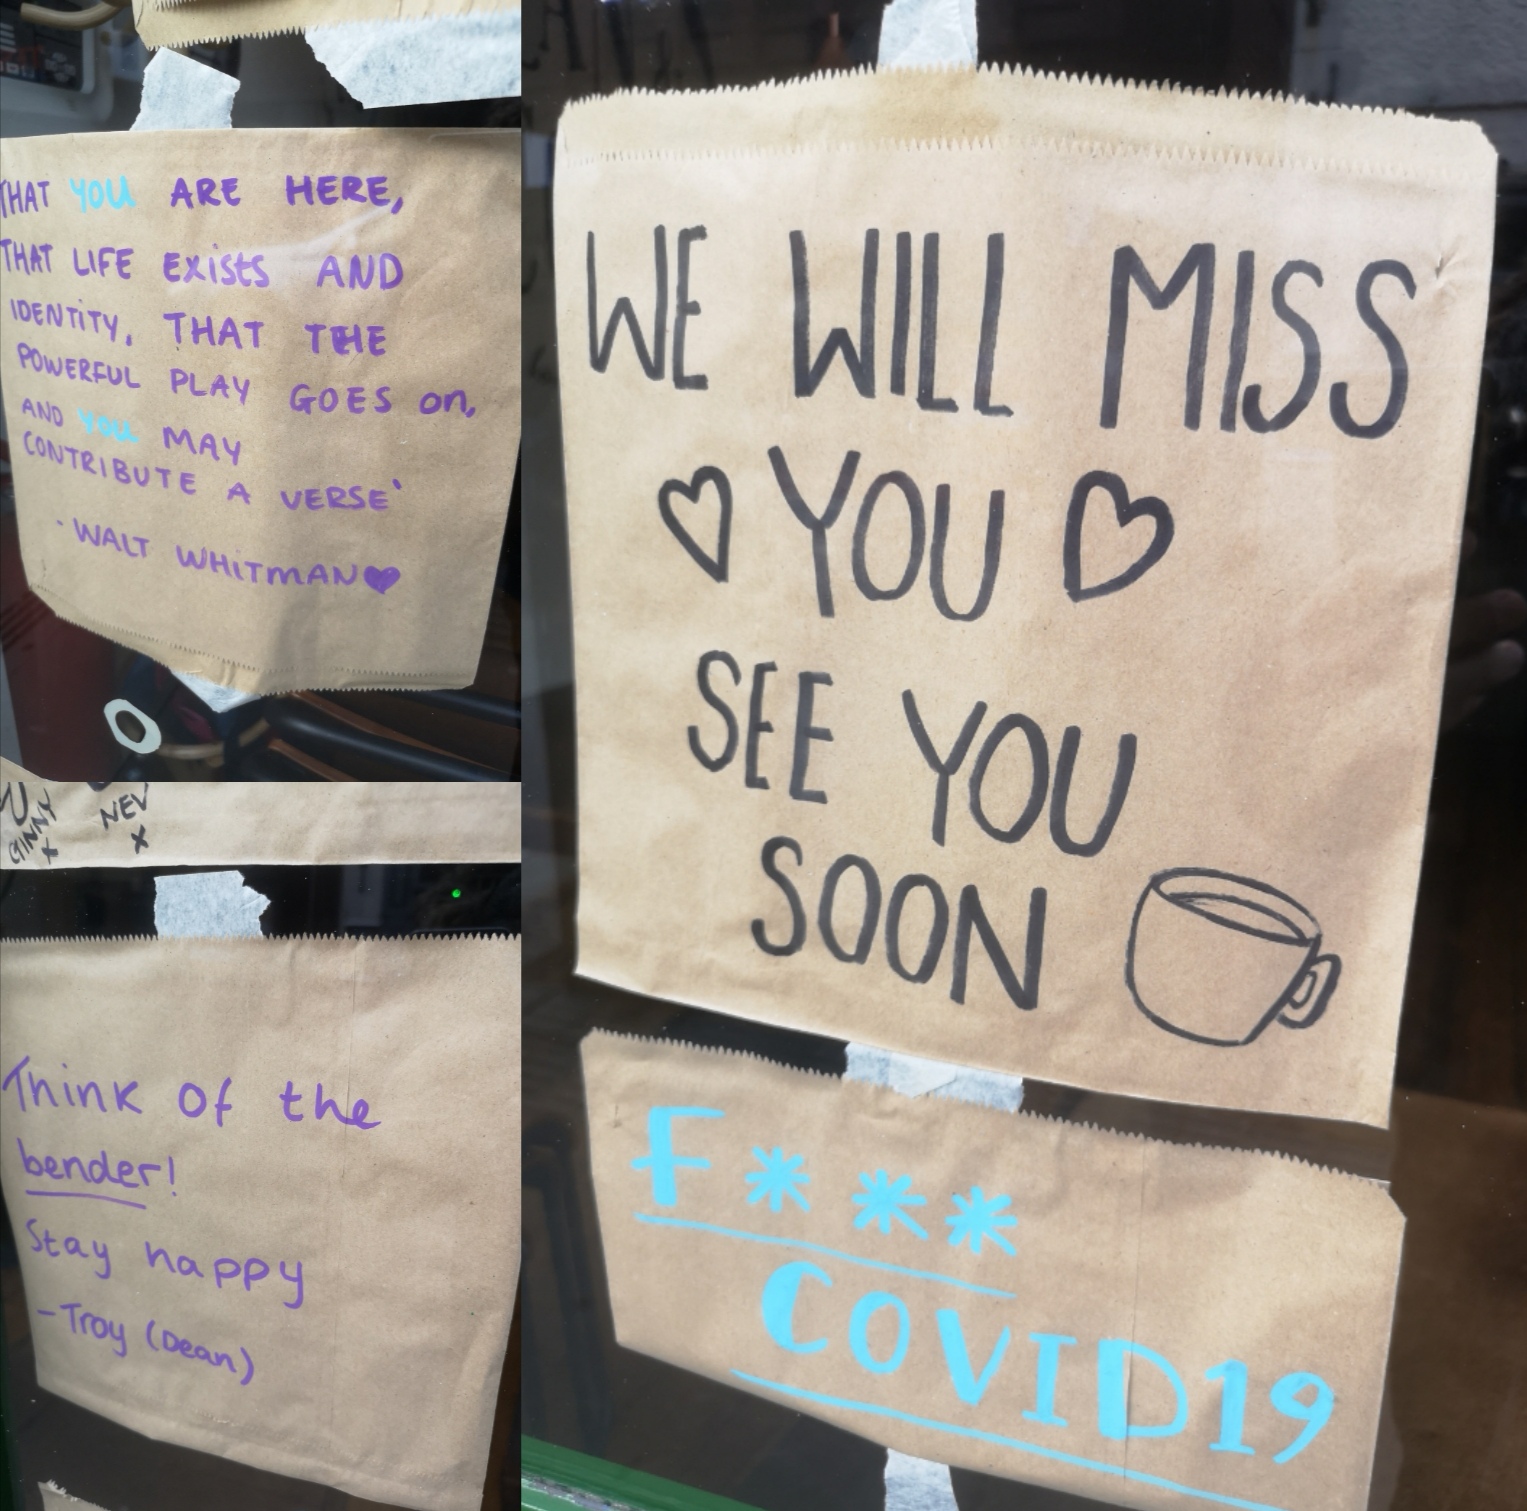 THAT YOU ARE HERE,
THAT LIFE ExistS AND
IDENTITY, THAT THE
POWERFUL PLAY GOES on,
AND YOU MAY
CONTRIBUTE A VERSE'
- WALT WHiTMAN
GINNY
x
NEV
x
Think of the
bender!
Stay happy
- Troy (Dean)
WE WILL MISS
YOU
SEE YOU
SOON
F***
COVID19